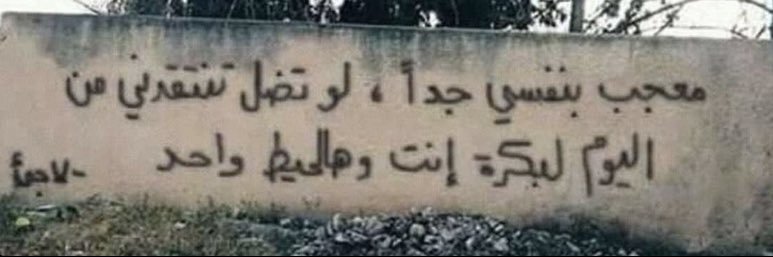 معجب بنفسي جداً ، لو تضل تنتقدني من
اليوم لبكرة إنت وهالحيط واحد